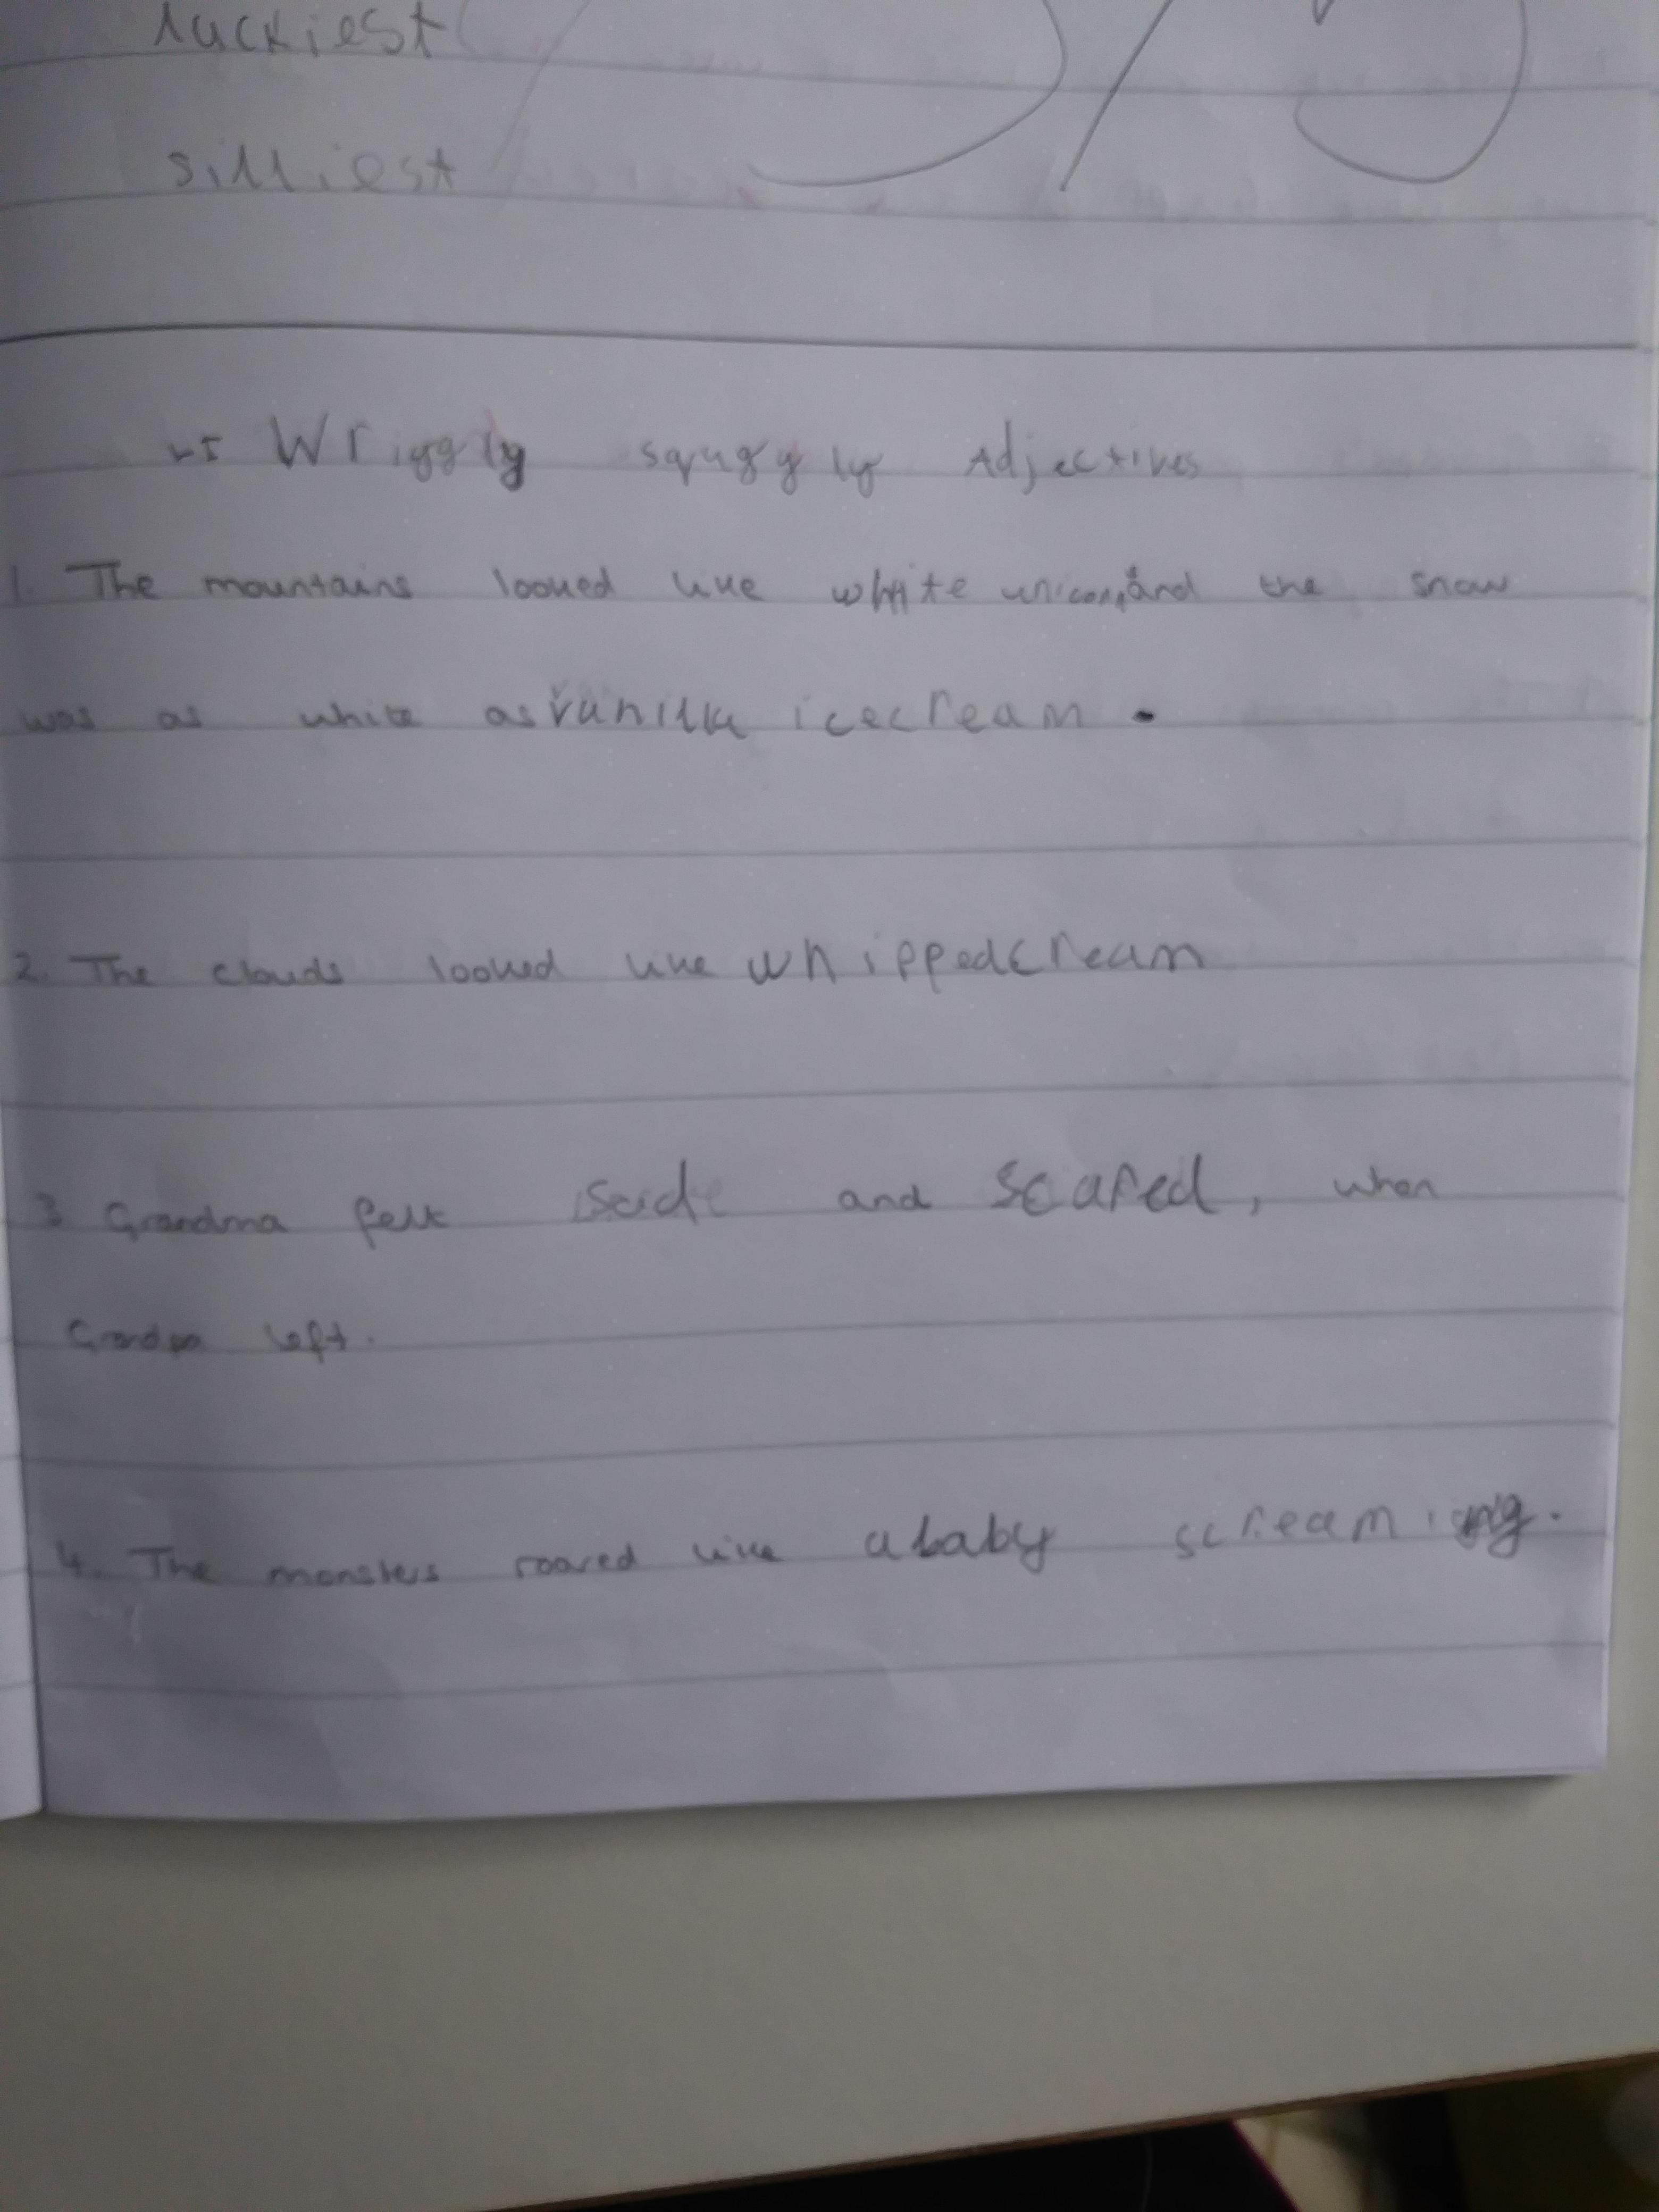 luckiest
silliest
LI Wriggly squggly Adjectives
1. The mountains looked like white and the snow
was as white as vanilla icecream.
2. The clouds looked like whippedcream
3 Grandma felt sad and scared, when
Grandpa left.
4. The monsters roared like a baby screaming.